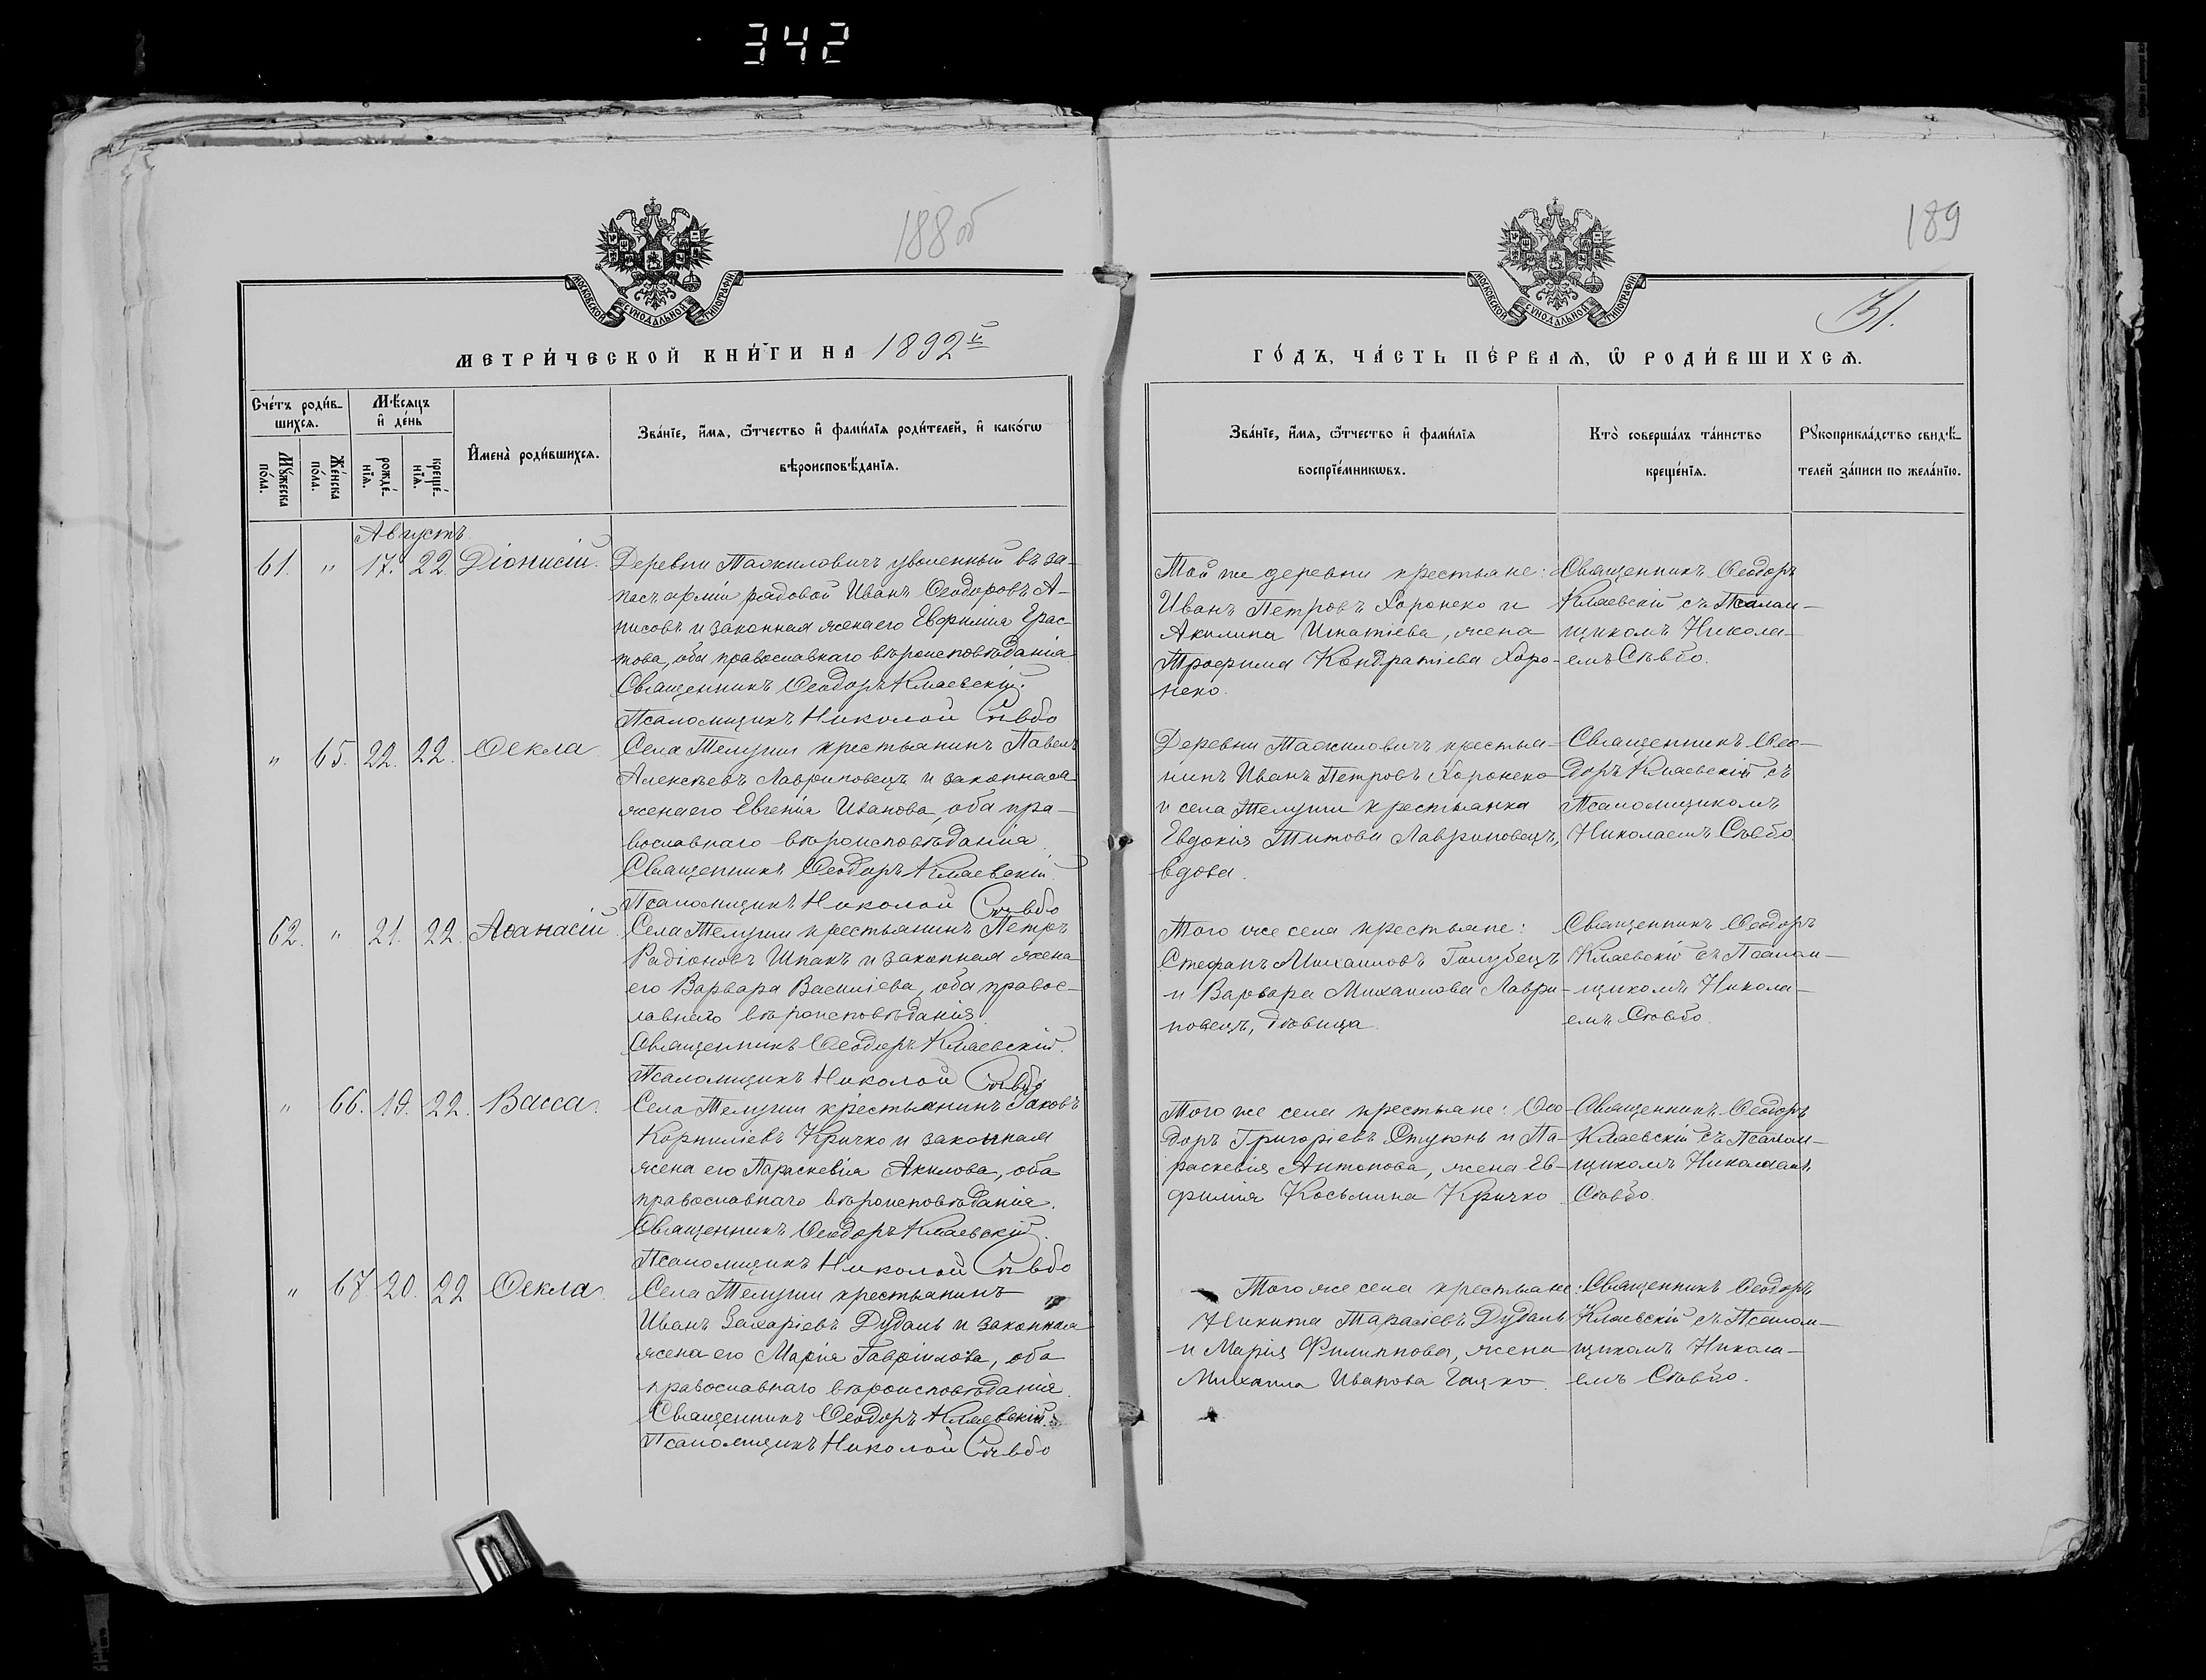 342
188 об
189
31.
МОСКОВСКОЙ СУНОДАЛЬНОЙ ТИПОГРАФІИ
МОСКОВСКОЙ СУНОДАЛЬНОЙ ТИПОГРАФІИ
МЕТРИ́ЧЕСКОЙ КНИ́ГИ НА 1892й
ГО́ДЪ, ЧА́СТЬ ПЕ́РВАѦ, Ѡ҆ РОДИ́ВШИХСѦ.
Сче́тъ роди́в-
шихсѧ.
Мѣ́сѧцъ
и҆ де́нь
Мꙋ́жеска по́ла.
Же́нска по́ла.
рожде́-нїѧ.
креще́-нїѧ.
И҆мена̀ роди́вшихсѧ.
Зва́нїе, и҆́мѧ, ѻ҆́тчество и҆ фами́лїѧ роди́телей, и҆ како́гѡ
вѣроисповѣ́данїѧ.
Зва́нїе, и҆́мѧ, ѻ҆́тчество и҆ фами́лїѧ
воспрїе́мникѡвъ.
Кто̀ соверша́лъ та́инство
креще́нїѧ.
Рꙋкоприкла́дство свидѣ́-
телей за́писи по жела́нїю.
Августъ
61. " 17. 22. Діонисій.
Деревни Тажиловичъ уволенный въ за-
пасъ арміи рядовой Иванъ Ѳеодоровъ А-
нисовъ и законная жена его Евфимія Ерас-
това, оба православнаго вѣроисповѣданія
Священникъ Ѳеодоръ Клаевскій.
Псаломщикъ Николай Сѣвбо
Той же деревни крестьяне:
Иванъ Петровъ Хоронеко и
Акилина Игнатіева, жена
Трофима Кондратіева Хоро-
неко.
Священникъ Ѳеодоръ
Клаевскій съ Псалом-
щикомъ Никола-
емъ Сѣвбо.
" 65. 22. 22. Ѳекла
Села Телуши крестьянинъ Павелъ
Алексѣевъ Лавриновецъ и законная
жена его Евгенія Иванова, оба пра-
вославнаго вѣроисповѣданія.
Священникъ Ѳеодоръ Клаевскій.
Псаломщикъ Николай Сѣвбо
Деревни Тажиловичъ крестья-
нинъ Иванъ Петровъ Хоронеко
и села Телуши крестьянка
Евдокія Титова Лавриновецъ,
вдова.
Священникъ Ѳео-
доръ Клаевскій съ
Псаломщикомъ
Николаемъ Сѣвбо
62. " 21. 22. Аѳанасій
Села Телуши крестьянинъ Петръ
Радіоновъ Шпакъ и законная жена
его Варвара Василіева, оба правос-
лавнаго вѣроисповѣданія
Священникъ Ѳеодоръ Клаевскій.
Псаломщикъ Николай Сѣвбо
Того же села крестьяне:
Стефанъ Михаиловъ Голубецъ
и Варвара Михаилова Лаври-
новецъ, дѣвица.
Священникъ Ѳеодоръ
Клаевскій съ Псалом-
щикомъ Никола-
емъ Сѣвбо.
" 66. 19. 22. Васса.
Села Телуши крестьянинъ Іаковъ
Корниліевъ Кричко и законная
жена его Параскевія Акилова, оба
православнаго вѣроисповѣданія.
Священникъ Ѳеодоръ Клаевскій.
Псаломщикъ Николай Сѣвбо
Того же села крестьяне: Ѳео-
доръ Григоріевъ Стуконь и Па-
раскевія Антонова, жена Ев-
фимія Косьмина Кричко
Священникъ Ѳеодоръ
Клаевскій съ Псалом-
щикомъ Николаемъ
Сѣвбо.
" 67. 20. 22 Ѳекла.
Села Телуши крестьянинъ
Иванъ Захаріевъ Дудаль и законная
жена его Марія Гавріилова, оба
православнаго вѣроисповѣданія.
Священникъ Ѳеодоръ Клаевскій.
Псаломщикъ Николай Сѣвбо
Того же села крестьяне:
Никита Тарасіевъ Дудаль
и Марія Филиппова, жена
Михаила Иванова
Священникъ Ѳеодоръ
Клаевскій съ Псалом-
щикомъ Никола-
емъ Сѣвбо.